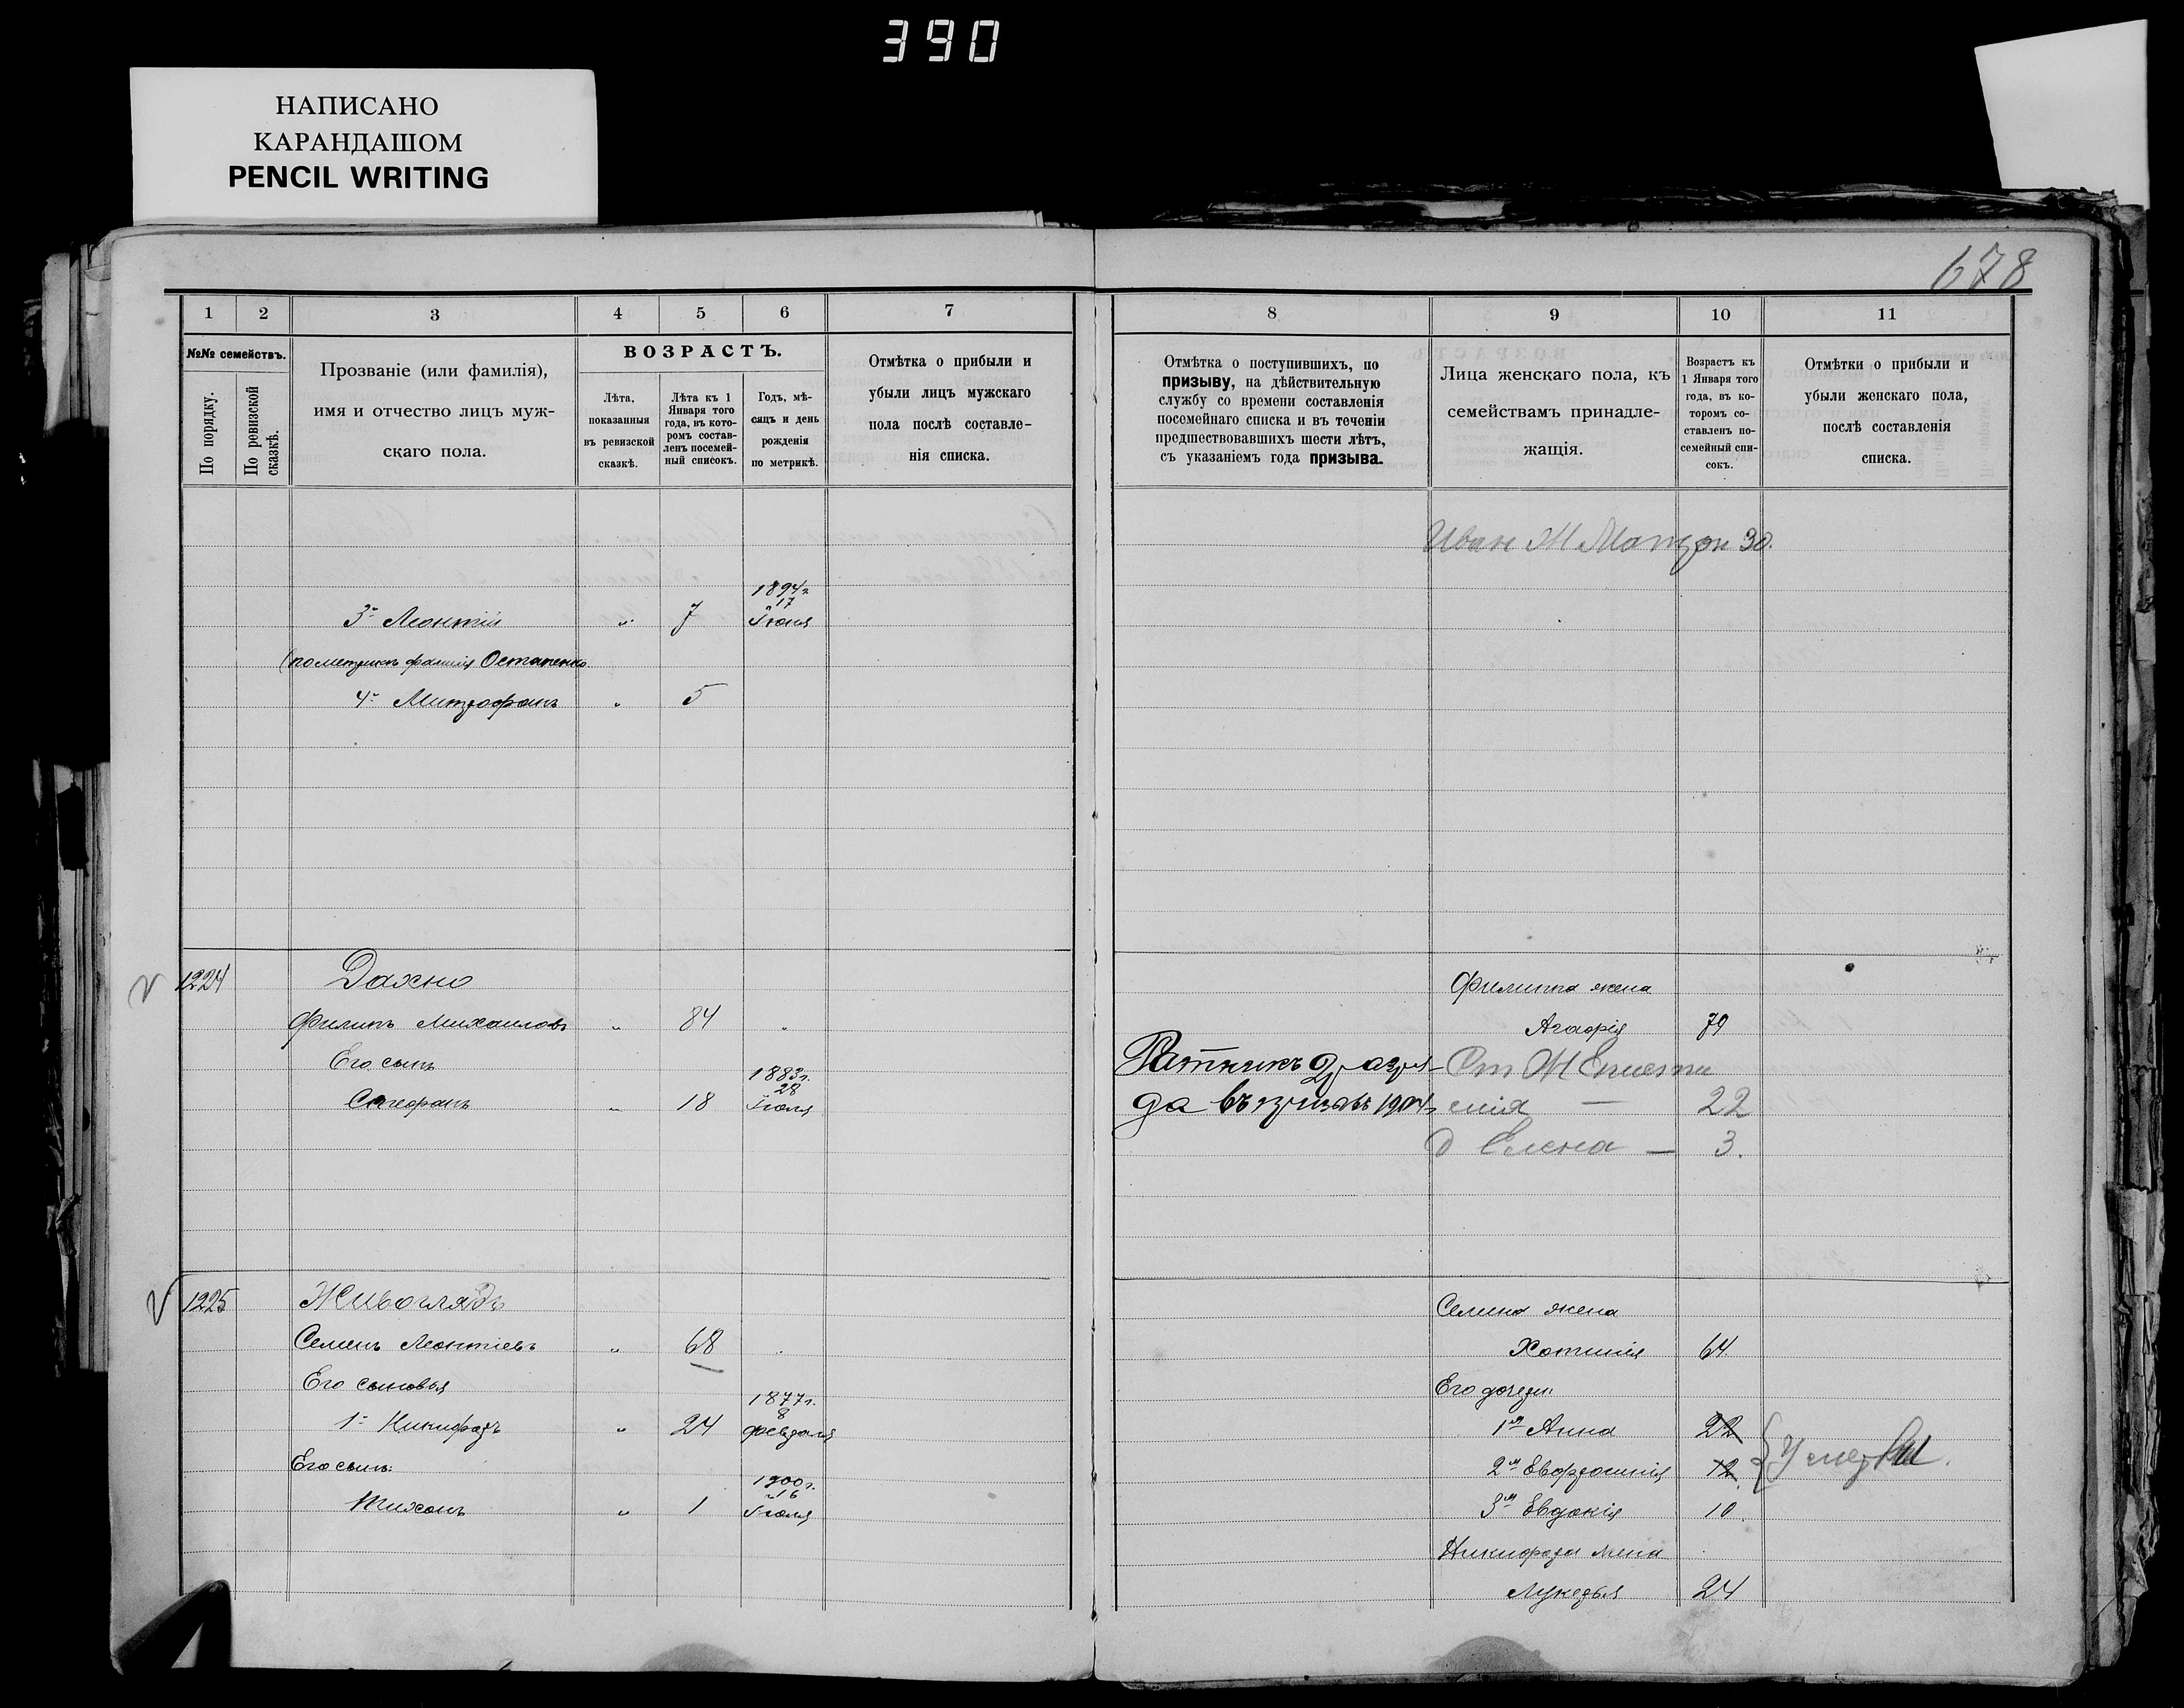 390
НАПИСАНО
КАРАНДАШОМ
PENCIL WRITING
678
1 2 3 4 5 6 7
№№ семействъ.
По порядку.
По ревизской сказкѣ.
Прозваніе (или фамилія),
имя и отчество лицъ муж-
скаго пола.
ВОЗРАСТЪ.
Лѣта,
показанныя
въ ревизской
сказкѣ.
Лѣта къ 1
Января того
года, въ кото-
ромъ состав-
ленъ посемей-
ный списокъ.
Годъ, мѣ-
сяцъ и день
рожденія
по метрикѣ.
Отмѣтка о прибыли и
убыли лицъ мужскаго
пола послѣ составле-
нія списка.
8 9 10 11
Отмѣтка о поступившихъ, по
призыву, на дѣйствительную
службу со времени составленія
посемейнаго списка и въ теченіи
предшествовавшихъ шести лѣтъ,
съ указаніемъ года призыва.
Лица женскаго пола, къ
семействамъ принадле-
жащія.
Возрастъ къ
1 Января того
года, въ ко-
торомъ со-
ставленъ по-
семейный спи-
сокъ.
Отмѣтки о прибыли и
убыли женскаго пола,
послѣ составленія
списка.
Иван Ж 30.
1894 г.
17
3й Леонтій " 7 Іюня
(по метрикѣ фамилія Остапенко
4й Митрофанъ " 5
1224 Дахно
Филипа жена
Филипъ Михаиловъ " 84 "
Агафія 79
Его сынъ
1883 г.
28
Стефанъ " 18 Іюля
Ратникъ 2 разря-
да въ призывѣ 1904 г.
Ст Ж Еписти
мія — 22
д Елена — 3.
1225 Живоглядъ
Семена жена
Семенъ Леонтіевъ " 68 "
Хотинія 64
Его сыновья
Его дочери:
1877 г.
8
1й Никифоръ " 24 февраля
1я Анна 22
Его сынъ:
2я Евфросинія 12
Умерли.
1900 г.
16
Тихонъ " 1 Іюня
3я Евдокія 10.
Никифора жена
Лукерья 24